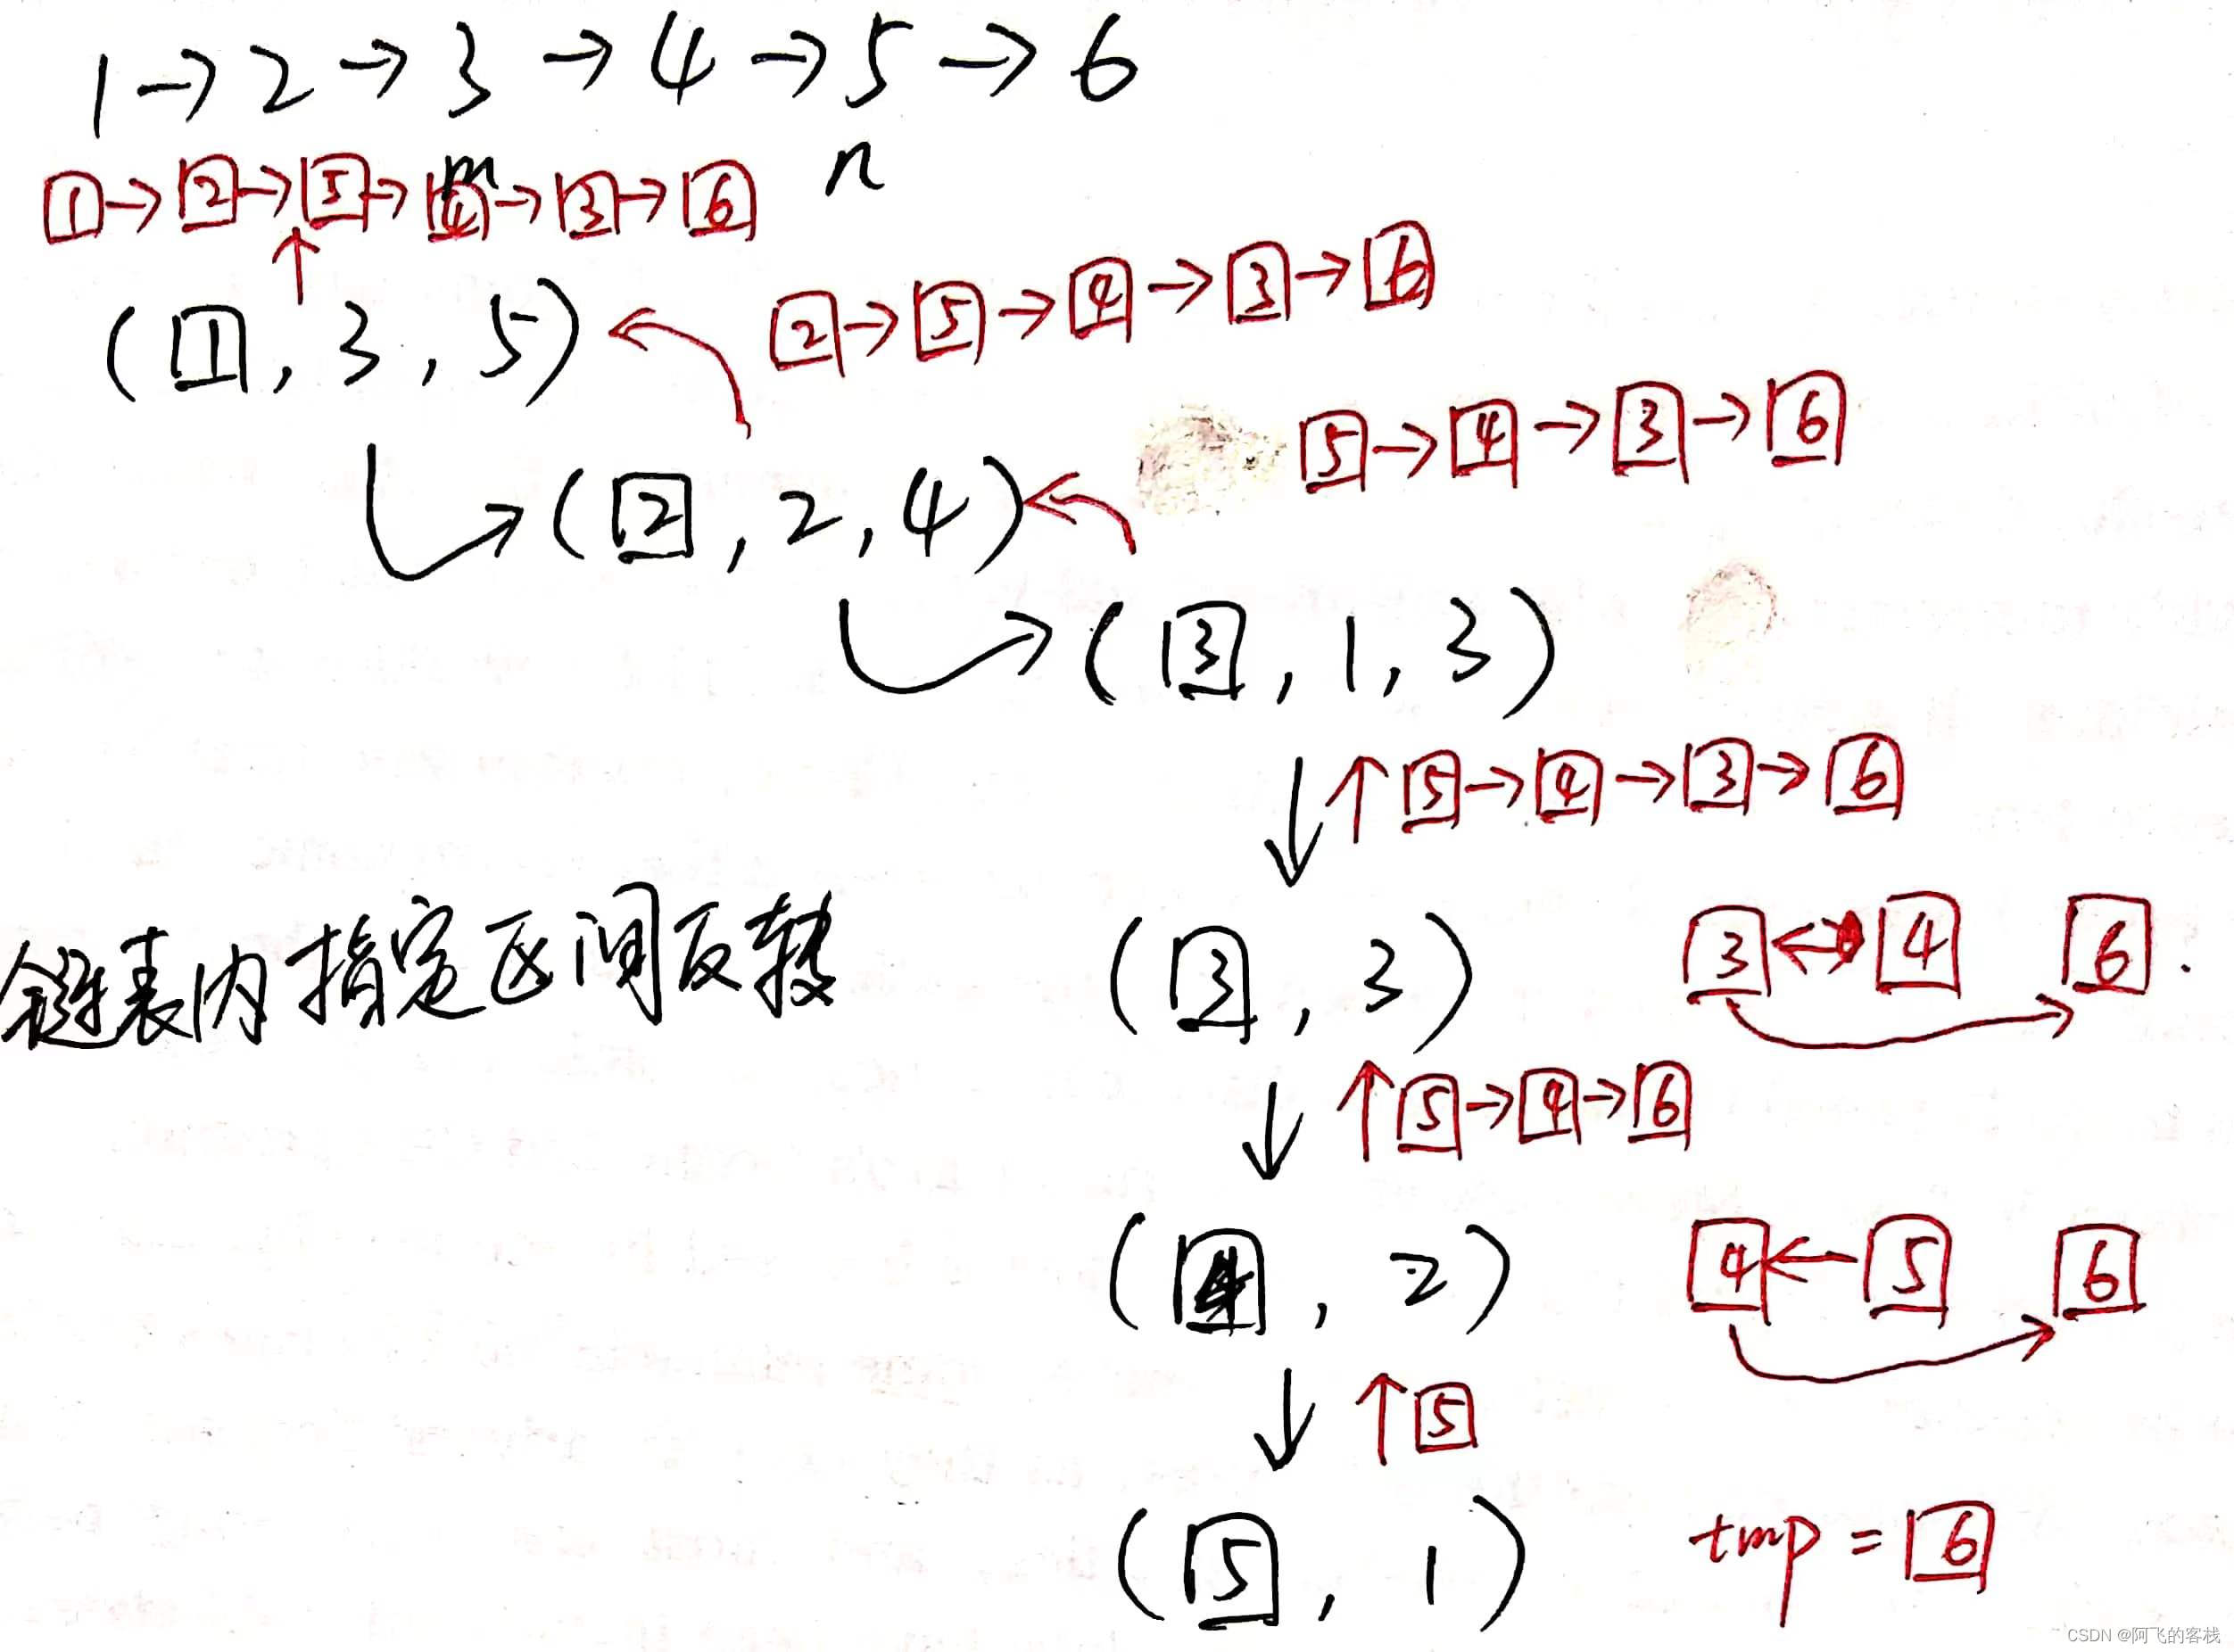 1→2→3→4→5→6
n
1→2→5→4→3→6
(1, 3, 5)
2→5→4→3→6
5→4→3→6
(2, 2, 4)
(3, 1, 3)
↑5→4→3→6
链表内指定区间反转
(3, 3)
3 4 6
↑5→4→6
(4, 2)
4←5 6
↑5
(5, 1)
tmp = 6
CSDN @阿飞的客栈